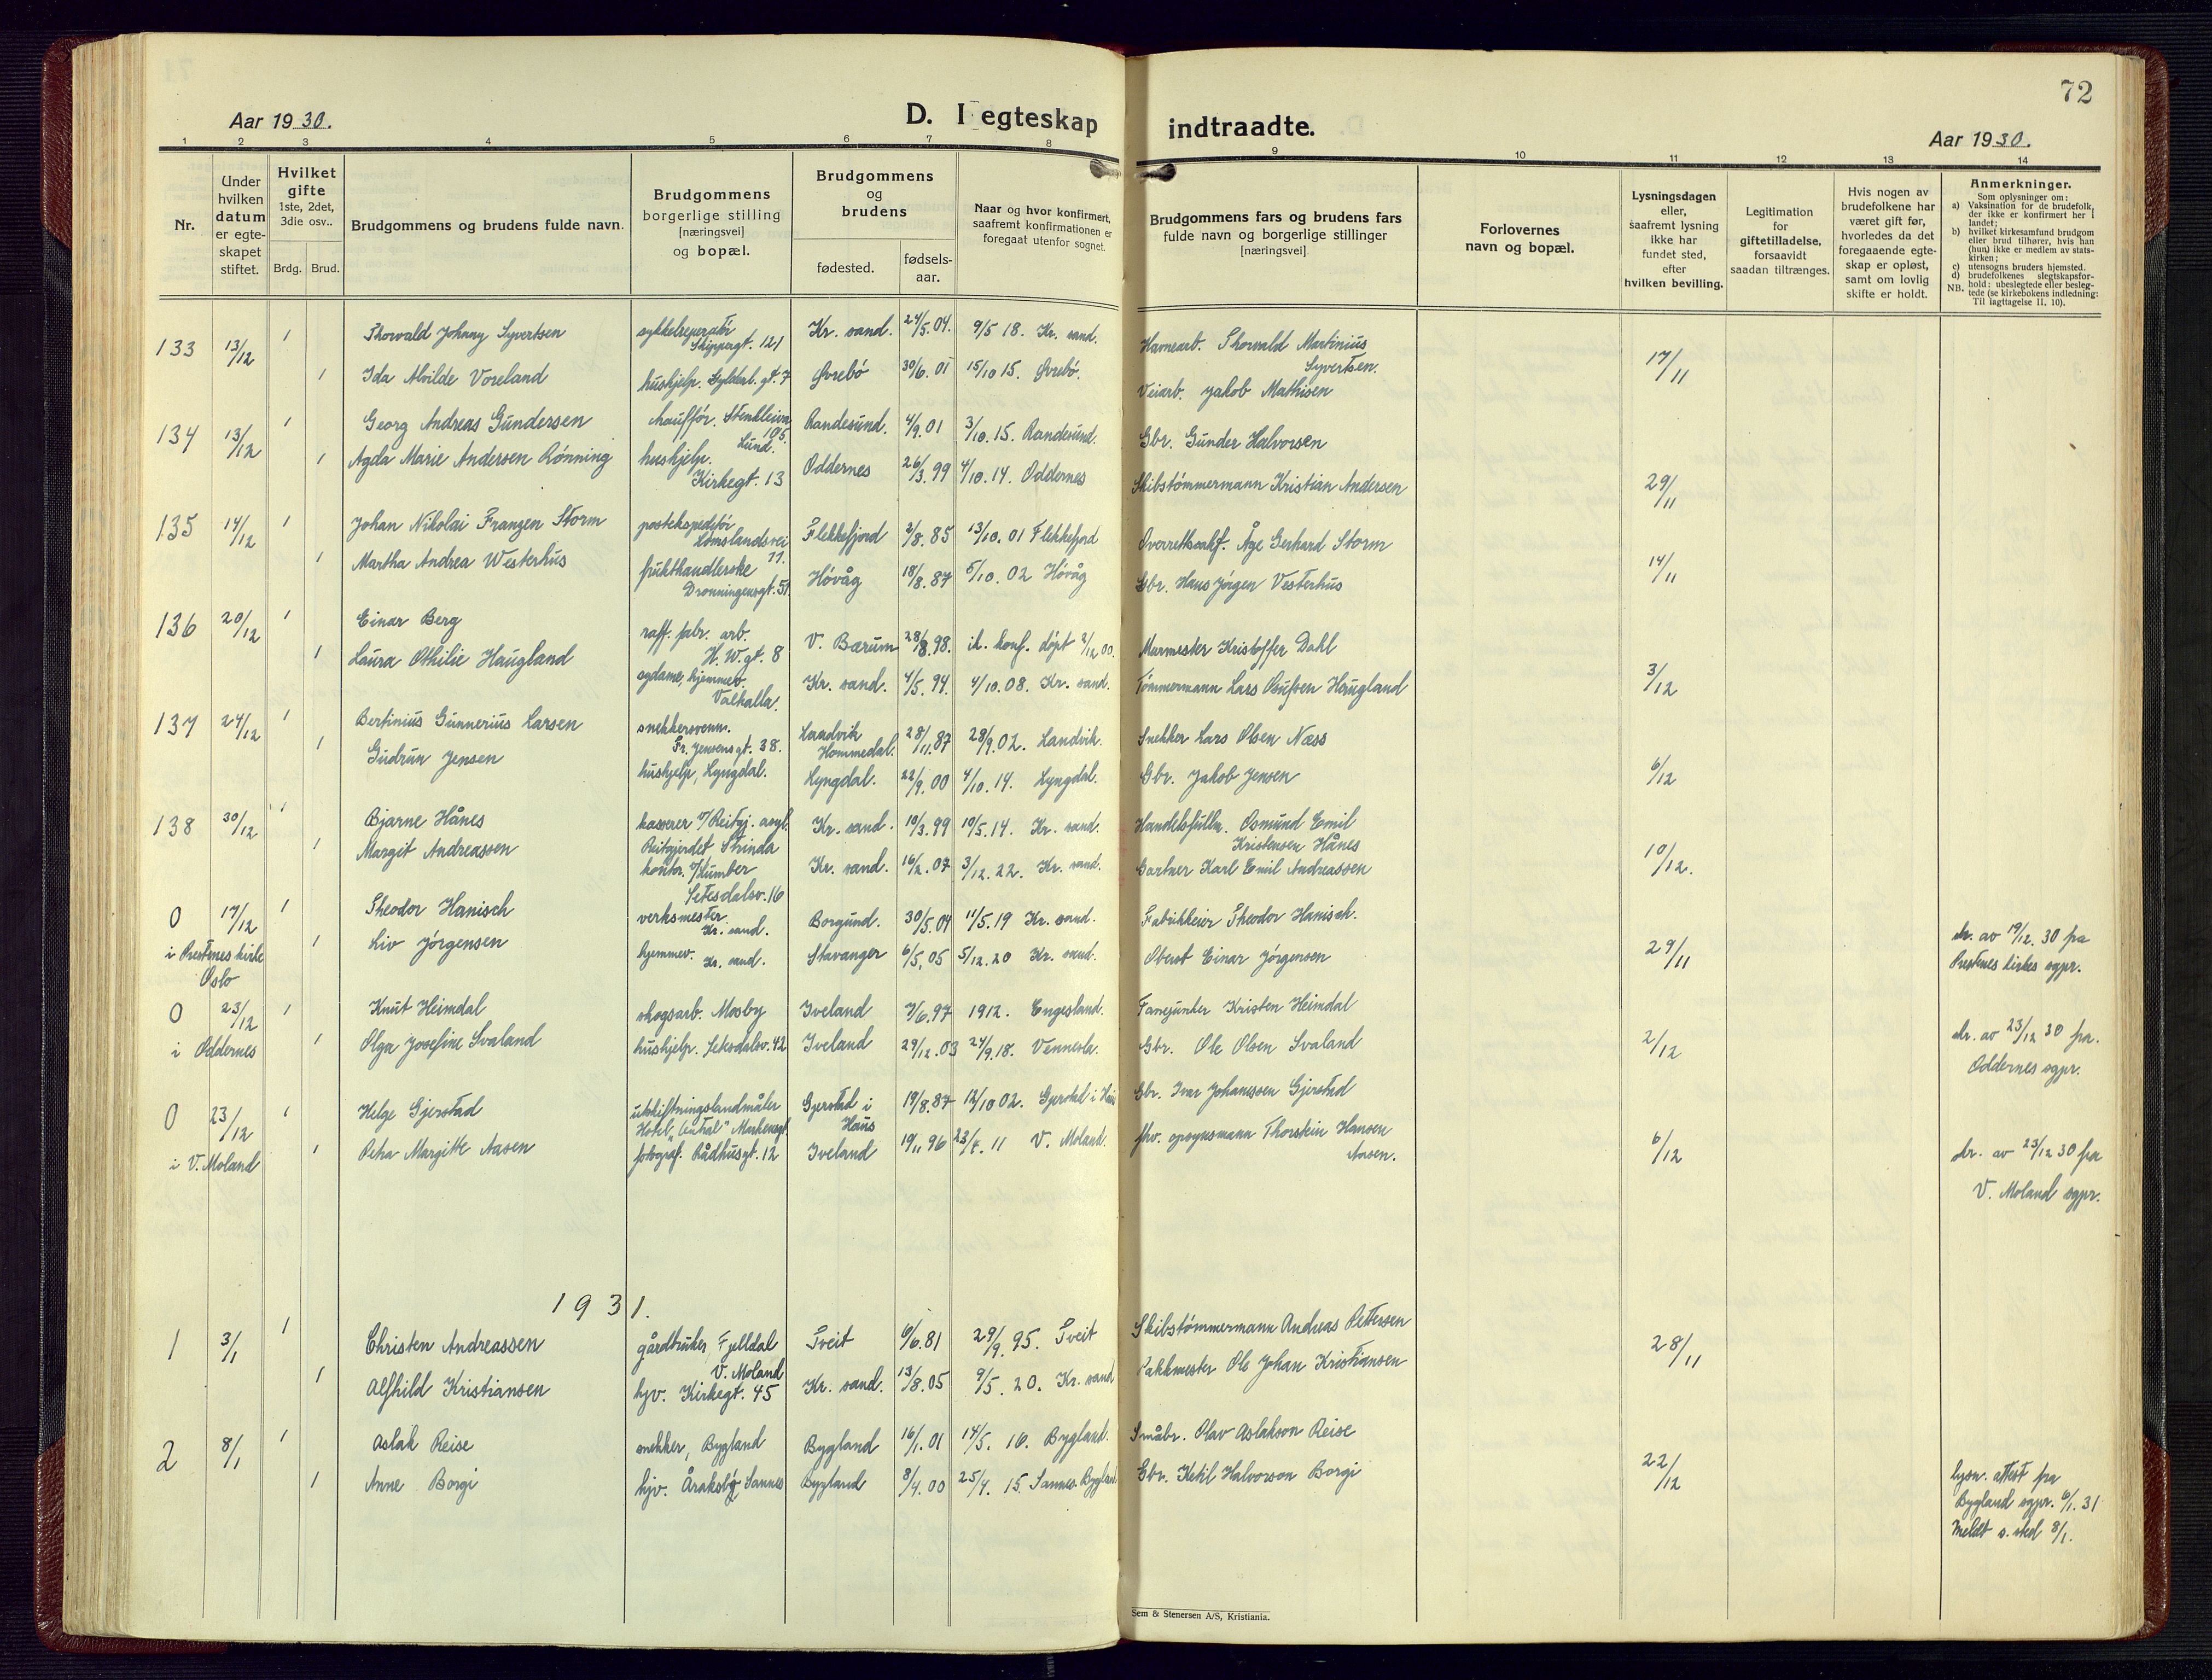 72
Aar 1930.
D. I egteskap indtraadte.
Aar 1930.
1 2 3 4 5 6 7 8 9 10 11 12 13 14
Nr.
Under hvilken datum er egte-skapet stiftet.
Hvilket gifte 1ste, 2det, 3die osv..
Brdg. Brud.
Brudgommens og brudens fulde navn.
Brudgommens borgerlige stilling [næringsvei] og bopæl.
Brudgommens og brudens
fødested. fødsels-aar.
Naar og hvor konfirmert, saafremt konfirmationen er foregaat utenfor sognet.
Brudgommens fars og brudens fars fulde navn og borgerlige stillinger [næringsvei]
Forlovernes navn og bopæl.
Lysningsdagen eller, saafremt lysning ikke har fundet sted, efter hvilken bevilling.
Legitimation for giftetilladelse, forsaavidt saadan tiltrænges.
Hvis nogen av brudefolkene har været gift før, hvorledes da det foregaaende egte-skap er opløst, samt om lovlig skifte er holdt.
Anmerkninger.
Som oplysninger om:
a) Vaksination for de brudefolk, der ikke er konfirmert her i landet;
b) hvilket kirkesamfund brudgom eller brud tilhører, hvis han (hun) ikke er medlem av stats-kirken;
c) utensogns bruders hjemsted.
d) brudefolkenes slegtskapsfor-hold: ubeslegtede eller besleg-tede (se kirkebokens indledning: Til iagttagelse II, 10).
NB.
133 13/12 1 Thorvald Johnny Syvertsen sykkelreperatör Skippergt. 121 Kr. sand. 24/5.04. 9/5 18. Kr. sand. Havnearb. Thorvald Martinius Syvertsen. 17/11
1 Ida Alvilde Voreland hushjelp. Gyldenl. gt. 7 Øvrebö 30/6. 01 15/10 15. Øvrebö. Veiarb. Jakob Mathisen
134 13/12 1 Georg Andreas Gundersen chauffør. Stenkleiva 105. Lund. Randesund. 4/9.01 3/10.15. Randesund. Gbr. Gunder Halvorsen 29/11
1 Agda Marie Andersen Rønning hushjelp. Kirkegt. 13 Oddernes 26/3.99 4/10.14. Oddernes Skibstömmermann Kristian Andersen
135 14/12 1 Johan Nikolai Franzen Storm postekspeditör Lømslandsvei 11. Flekkefjord 2/8.85 13/10.01 Flekkefjord Overrettssakf. Åge Gerhard Storm 14/11
1 Martha Andrea Westerhus frukthandlerske Dronningensgt. 51. Hövåg 18/8.87 5/10.02 Hövåg Gbr. Hans Jörgen Vesterhus
136 20/12 1 Einar Berg raff. fabr. arb. H. W. gt. 8 V. Bærum 28/8.98. ik. konf. döpt 2/12 00. Murmester Kristoffer Dahl 3/12
1 Laura Othilie Haugland sydame, hjemmev. Valhalla. Kr. sand. 4/5.94. 4/10.08. Kr. sand. Tömmermann Lars Haugland
137 24/12 1 Bertinius Gunnerius Larsen snekkersvenn. Fr. Jensens gt. 38. Landvik Hommedal. 28/11.87 28/9.02. Landvik. Snekker Lars Olsen Næss 6/12
1 Gudrun Jensen hushjelp, Lyngdal. Lyngdal. 22/9.00 4/10.14. Lyngdal. Gbr. Jakob Jensen
138 30/12 1 Bjarne Hånes kasserer v/Reitgj. asyl. Reitgjerdet Strinda Kr. sand. 10/3.99 10/5.14. Kr. sand. Handelsfullm. Osmund Emil Kristensen Hånes 10/12.
1 Margit Andreassen kontor. Setesdalsv. 16 Kr. sand. 16/2.07 3/12.22. Kr. sand. Gartner Karl Emil Andreassen
0 17/12 1 Theodor Hanisch verksmester. Kr. sand. Borgund. 30/5.04 11/5.19 Kr. sand. Fabrikkeier Theodor Hanisch. 29/11
i Prestenes kirke Oslo 1 Liv Jörgensen hjemmev. Kr. sand. Stavanger 6/5.05 5/12.20 Kr. sand. Oberst Einar Jörgensen
av 19/12. 30 fra Prestenes kirkes sgpr.
0 23/12 1 Knut Heimdal skogsarb. Mosby Iveland 7/6.97 1912. Engesland. Fanejunker Kristen Heimdal 2/12
i Oddernes 1 Olga Josefine Svaland hushjelp. Setesdalsv. 42 Iveland 29/12.03 24/9.18. Vennesla. Gbr. Ole Olsen Svaland
av 23/12 30 fra. Oddernes sgpr.
0 23/12 1 Helge Gjerstad utskiftningslandmåler Hotel „Central" Markensgt. Gjerstad i Haus 19/8.87 12/10 02. Gjerstad i Haus Gbr. Ivar Johannssen Gjerstad 6/12
i V. Moland 1 Petra Margitte Aasen fotograf. Rådhusgt. 12 Iveland 19/11 96 23/4. 11 V. Moland. fhv. opsynsmann Thorstein Hansen Aasen.
av 23/12 30 fra V. Moland sgpr.
1931.
1 3/1 1 Christen Andreassen gårdbruker, Fjelldal V. Moland Tveit 6/6.81 29/9.95. Tveit Skibstömmermann Andreas Pettersen 28/11
1 Alfhild Kristiansen hjv. Kirkegt. 45 Kr. sand. 13/8.05 9/5.20. Kr. sand Pakkmester Ole Johan Kristiansen
2 8/1 1 Aslak Reise snekker, Bygland Bygland 16/1.01 14/5. 16. Bygland. Småbr. Olav Aslakson Reise 22/12
1 Anne Borgi hjv. Åraksbö Sannes Bygland 8/4.00 25/4. 15. Sannes Bygland Gbr. Ketil Halvorson Borgi
lysn. attest fra Bygland sgpr. 6/1. 31
Meldt s. sted 8/1.
Sem & Stenersen A/S, Kristiania.